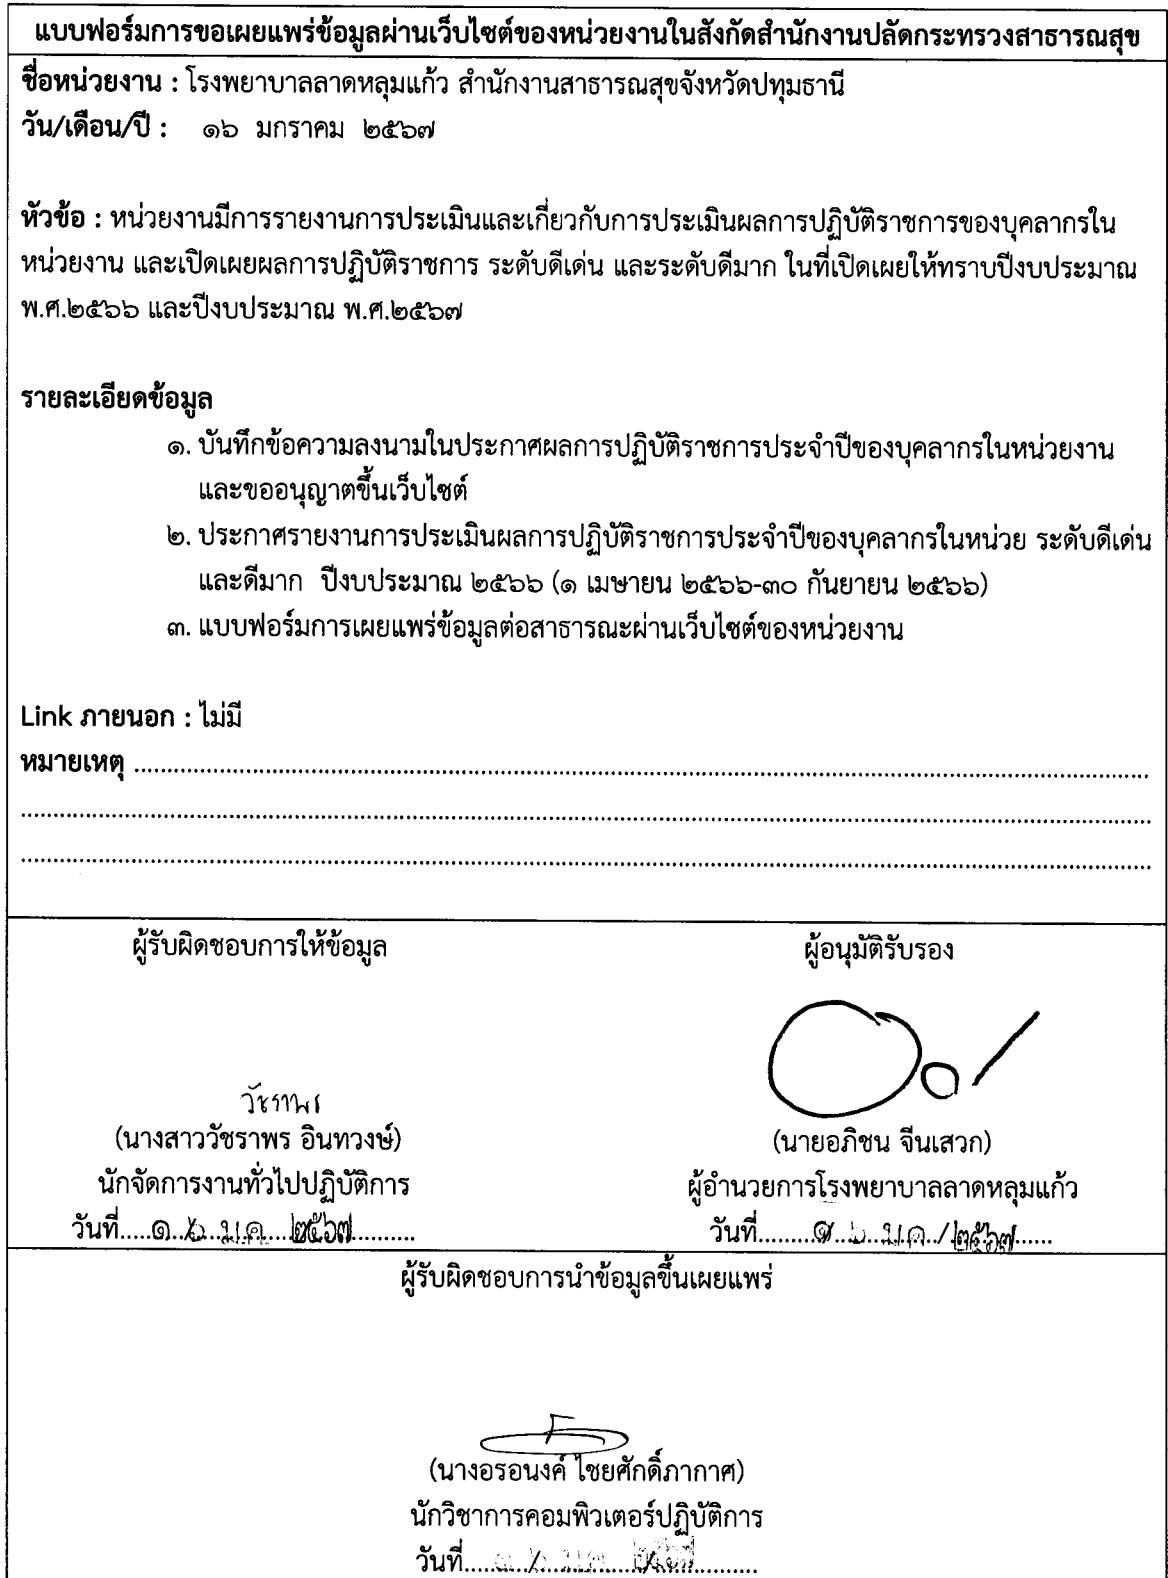 แบบฟอร์มการขอเผยแพร่ข้อมูลผ่านเว็บไซต์ของหน่วยงานในสังกัดสำนักงานปลัดกระทรวงสาธารณสุข
ชื่อหน่วยงาน : โรงพยาบาลลาดหลุมแก้ว สำนักงานสาธารณสุขจังหวัดปทุมธานี
วัน/เดือน/ปี : ๑๖ มกราคม ๒๕๖๗
หัวข้อ : หน่วยงานมีการรายงานการประเมินและเกี่ยวกับการประเมินผลการปฏิบัติราชการของบุคลากรใน
หน่วยงาน และเปิดเผยผลการปฏิบัติราชการ ระดับดีเด่น และระดับดีมาก ในที่เปิดเผยให้ทราบปีงบประมาณ
พ.ศ.๒๕๖๖ และปีงบประมาณ พ.ศ.๒๕๖๗
รายละเอียดข้อมูล
๑. บันทึกข้อความลงนามในประกาศผลการปฏิบัติราชการประจำปีของบุคลากรในหน่วยงาน
และขออนุญาตขึ้นเว็บไซต์
๒. ประกาศรายงานการประเมินผลการปฏิบัติราชการประจำปีของบุคลากรในหน่วย ระดับดีเด่น
และดีมาก ปีงบประมาณ ๒๕๖๖ (๑ เมษายน ๒๕๖๖-๓๐ กันยายน ๒๕๖๖)
๓. แบบฟอร์มการเผยแพร่ข้อมูลต่อสาธารณะผ่านเว็บไซต์ของหน่วยงาน
Link ภายนอก : ไม่มี
หมายเหตุ
ผู้รับผิดชอบการให้ข้อมูล ผู้อนุมัติรับรอง
วัชราพร
(นางสาววัชราพร อินทวงษ์) (นายอภิชน จีนเสวก)
นักจัดการงานทั่วไปปฏิบัติการ ผู้อำนวยการโรงพยาบาลลาดหลุมแก้ว
วันที่.....๑๖ ม.ค. ๒๕๖๗.......... วันที่.........๑๖ ม.ค./๒๕๖๗......
ผู้รับผิดชอบการนำข้อมูลขึ้นเผยแพร่
(นางอรอนงค์ ไชยศักดิ์ภากาศ)
นักวิชาการคอมพิวเตอร์ปฏิบัติการ
วันที่